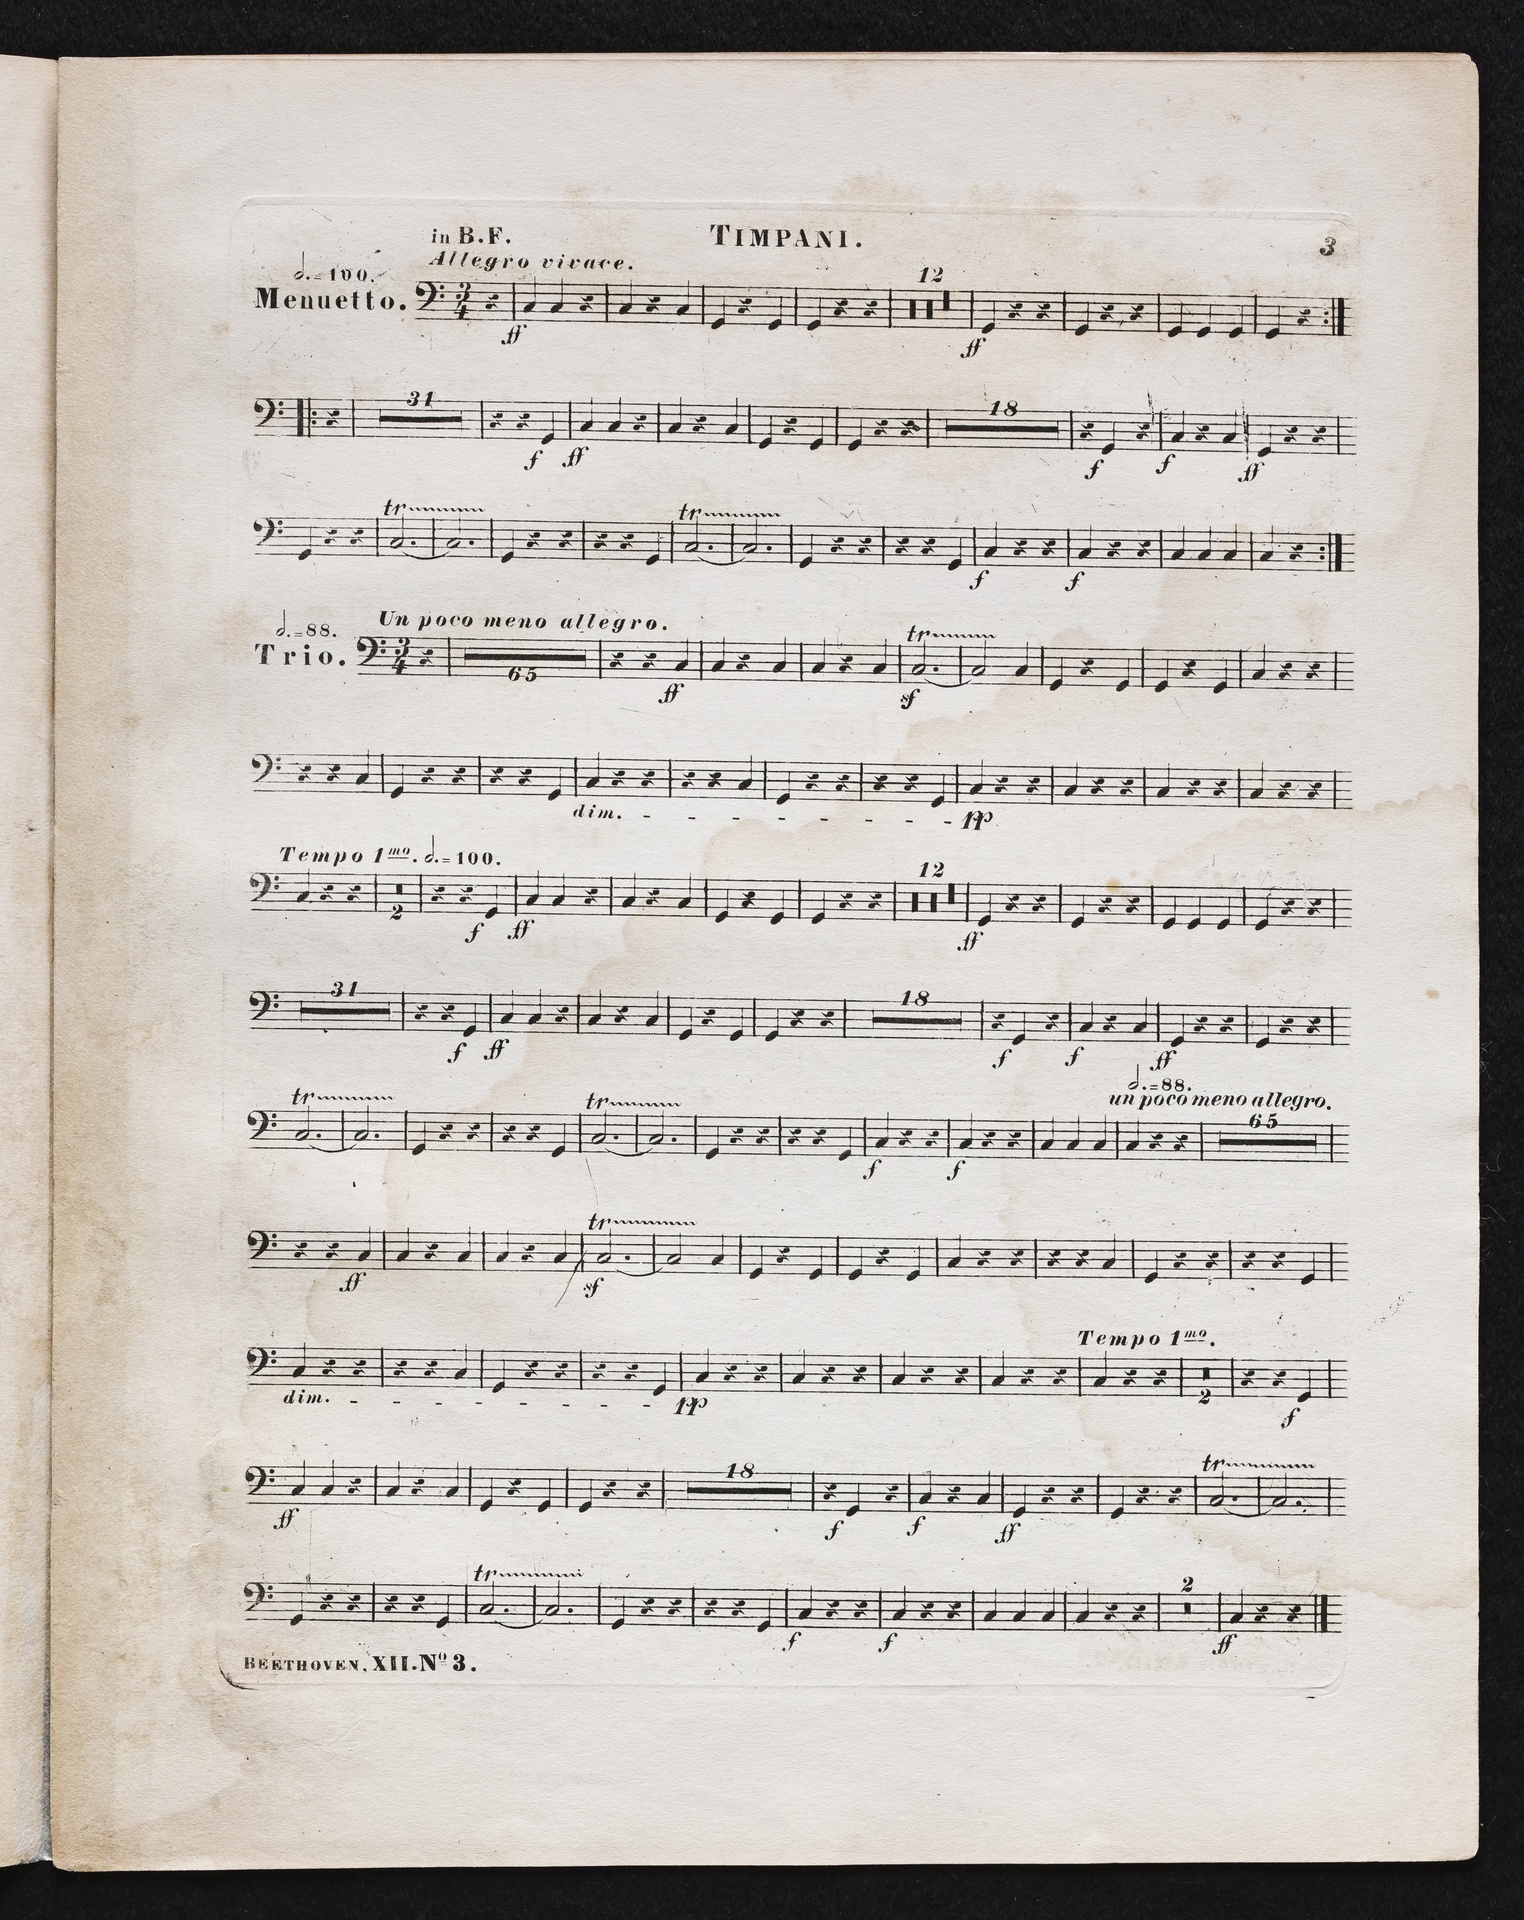 in B.F.
TIMPANI.
3
Allegro vivace.
𝅗𝅥. = 100.
Menuetto.
12
ff
ff
31
18
f ff
f f ff
tr
tr
f f
Un poco meno allegro.
𝅗𝅥. = 88.
Trio.
65
tr
ff
sf
dim.
pp
Tempo 1mo. 𝅗𝅥. = 100.
12
2
f ff
ff
31
18
f ff
f f ff
𝅗𝅥. = 88.
un poco meno allegro.
tr
tr
65
f f
tr
ff
sf
Tempo 1mo.
dim.
pp
2
f
18
tr
ff
f f ff
tr
2
f f ff
BEETHOVEN, XII. No 3.